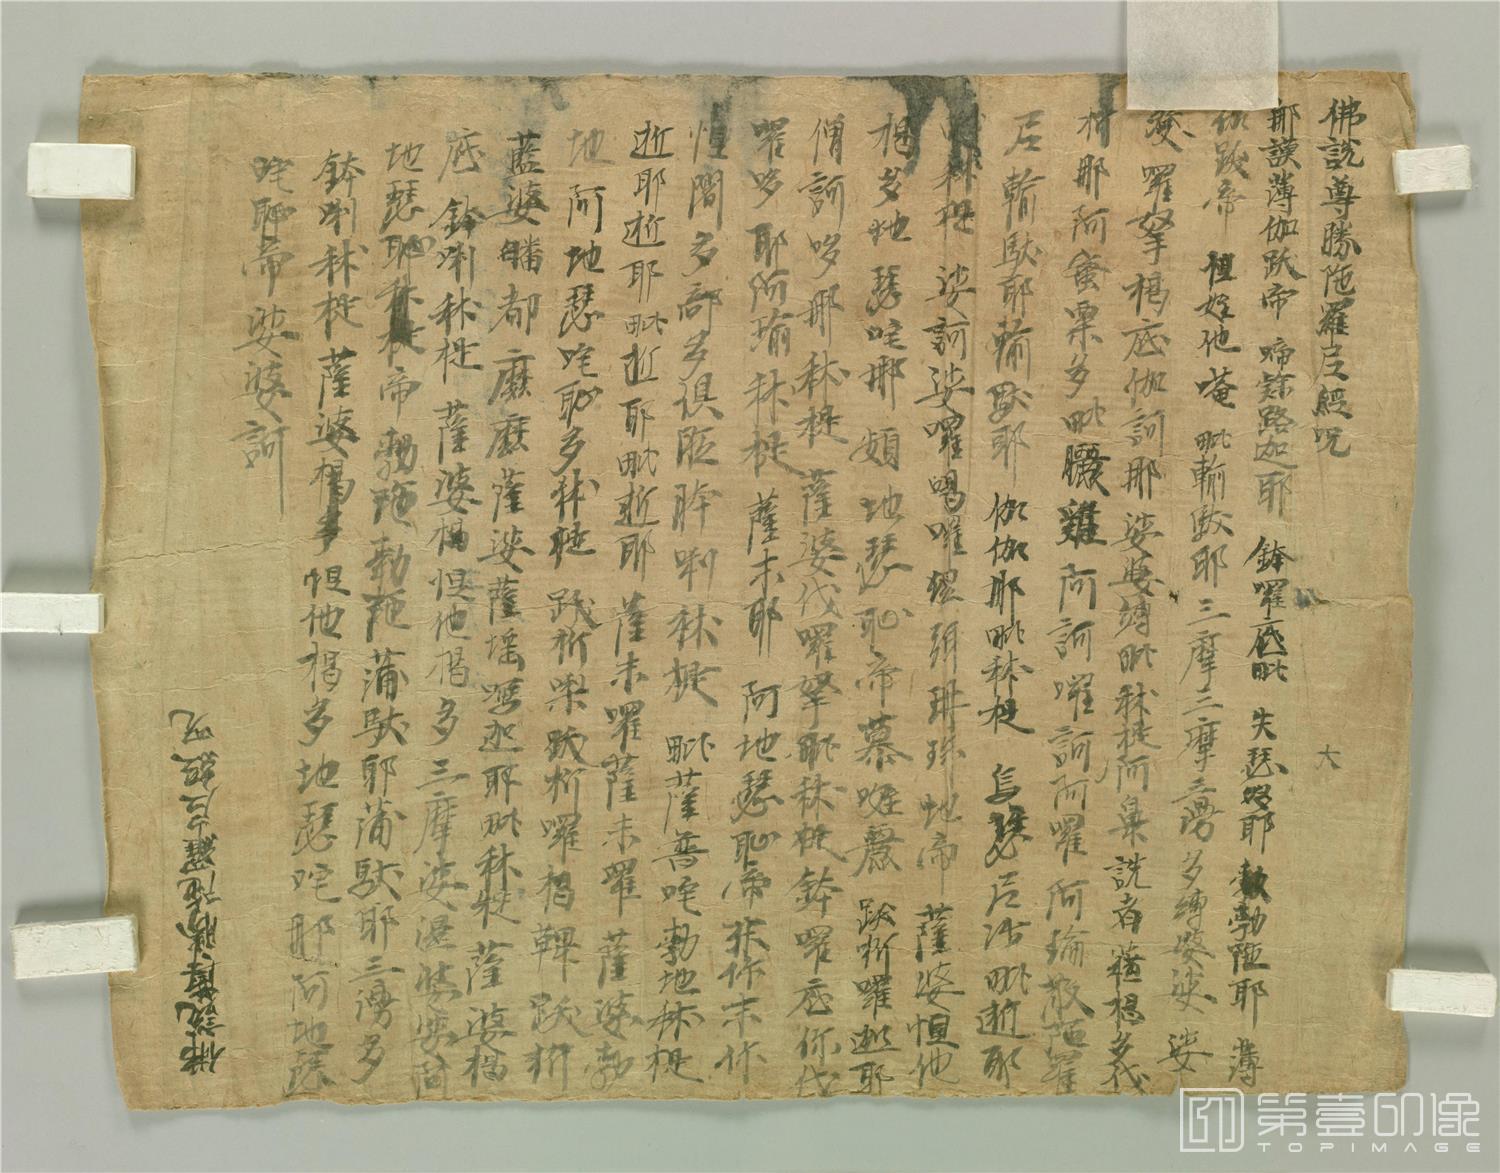 佛說尊勝陁羅尼經呪
那謨薄伽跋帝 啼隸路迦耶 鉢囉底毗 失瑟吒耶 勃勃陁耶 薄
伽跋帝 怛姪他 唵 毗輸馱耶 三摩三摩三湯多嚩婆娑 娑
發囉拏揭底伽訶那 娑婆嚩毗秫提阿鼻詵者 蘓揭多伐
析那阿蜜栗多毗曬雞 阿訶囉訶阿囉 阿瑜散陁羅
尼 輸馱耶輸馱耶 伽伽那毗秫提 烏瑟尼沙毗逝耶
秫提 娑訶娑囉喝囉濕弭珊珠地帝 薩婆怛他
揭多地瑟咤那頞地瑟耻帝慕姪麗 跋折囉迦耶
僧訶哆那秫提 薩婆伐囉拏毗秫提 鉢囉底你伐
囉哆耶阿瑜秫提 薩末耶 阿地瑟耻帝 末你末你
怛闥多部多俱胝 鉢唎秫提 毗薩普咤勃地秫提
逝耶逝耶毗逝耶毗逝耶 薩末囉薩末囉 薩婆勃
地 阿地瑟咤耻多秫提 跋析囇跋析囉揭鞞 跋析
藍婆皤都 麼麼薩婆薩埵寫迦耶毗秫提 薩婆揭
底 鉢唎秫提 薩婆揭怛他揭多三摩婆濕婆娑阿
地瑟耻秫提帝 勃陁勃陁 蒲馱耶蒲馱耶 三湯多
鉢唎秫提 薩婆揭多怛他揭多地瑟咤那阿地瑟
咤耻帝 娑婆訶
佛說尊勝陁羅尼經呪
大
第壹印像
TOPIMAGE